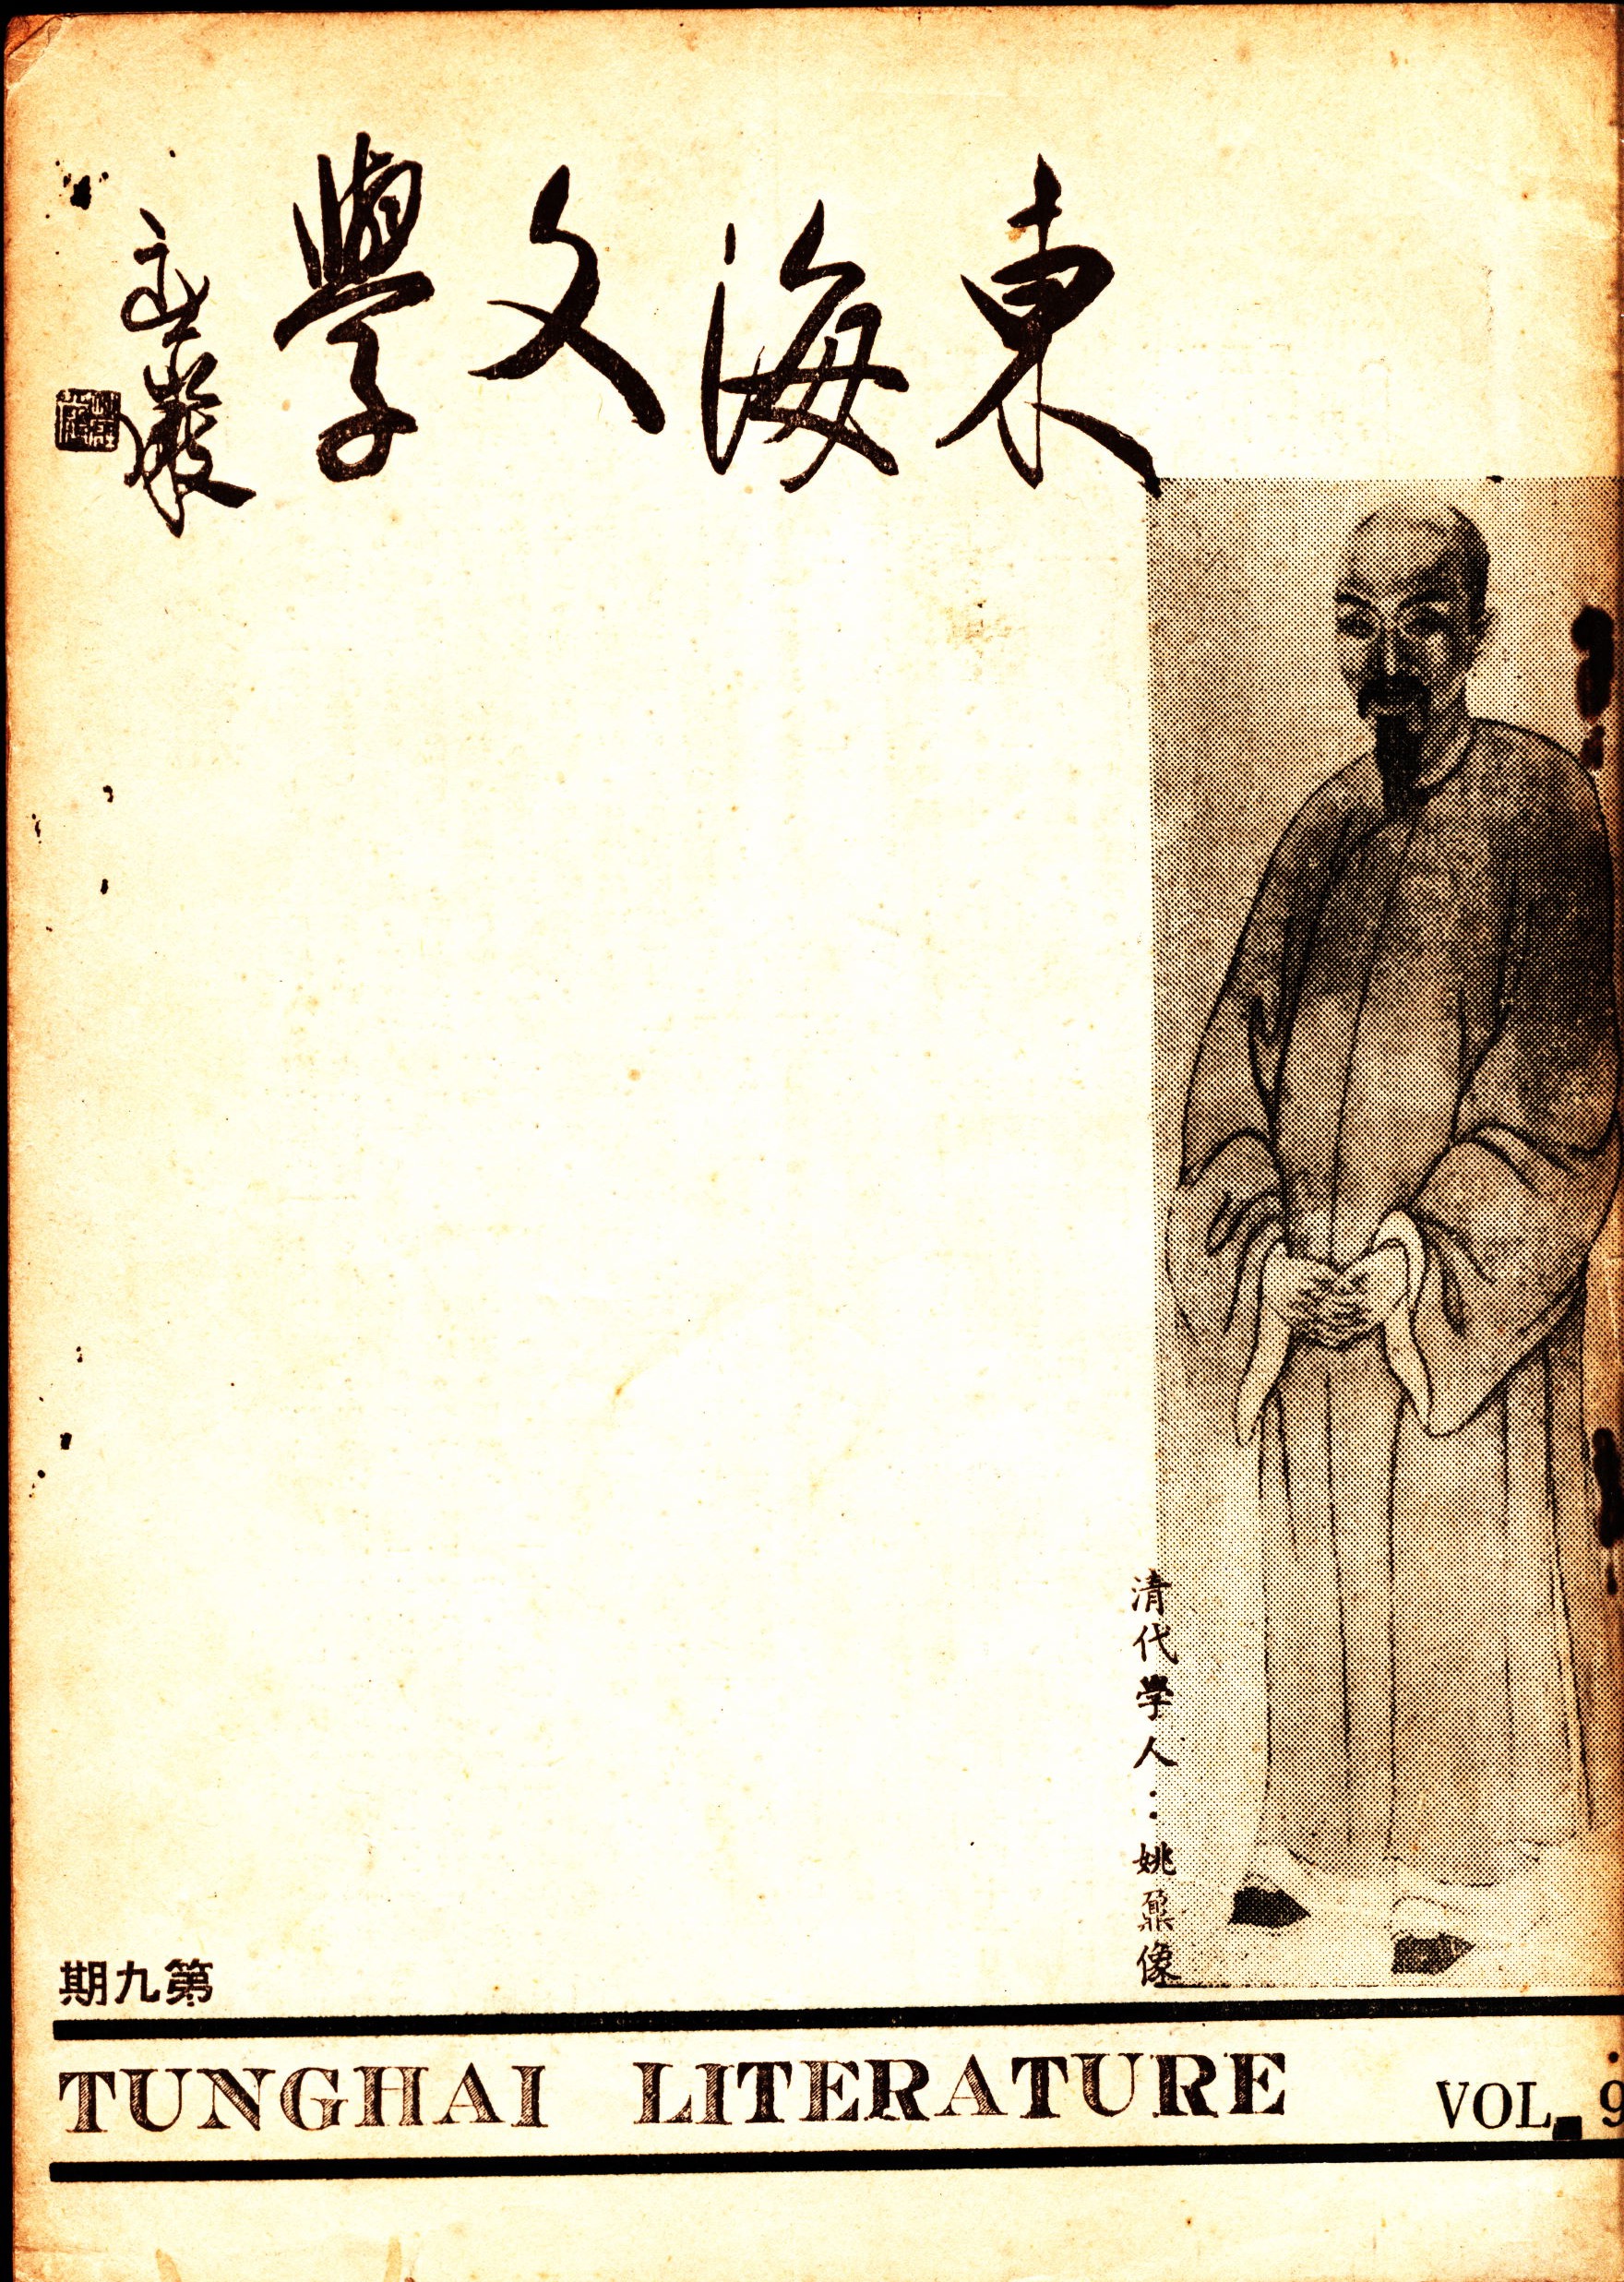 東海文學
清代學人：姚鼐像
第九期
TUNGHAI LITERATURE VOL. 9